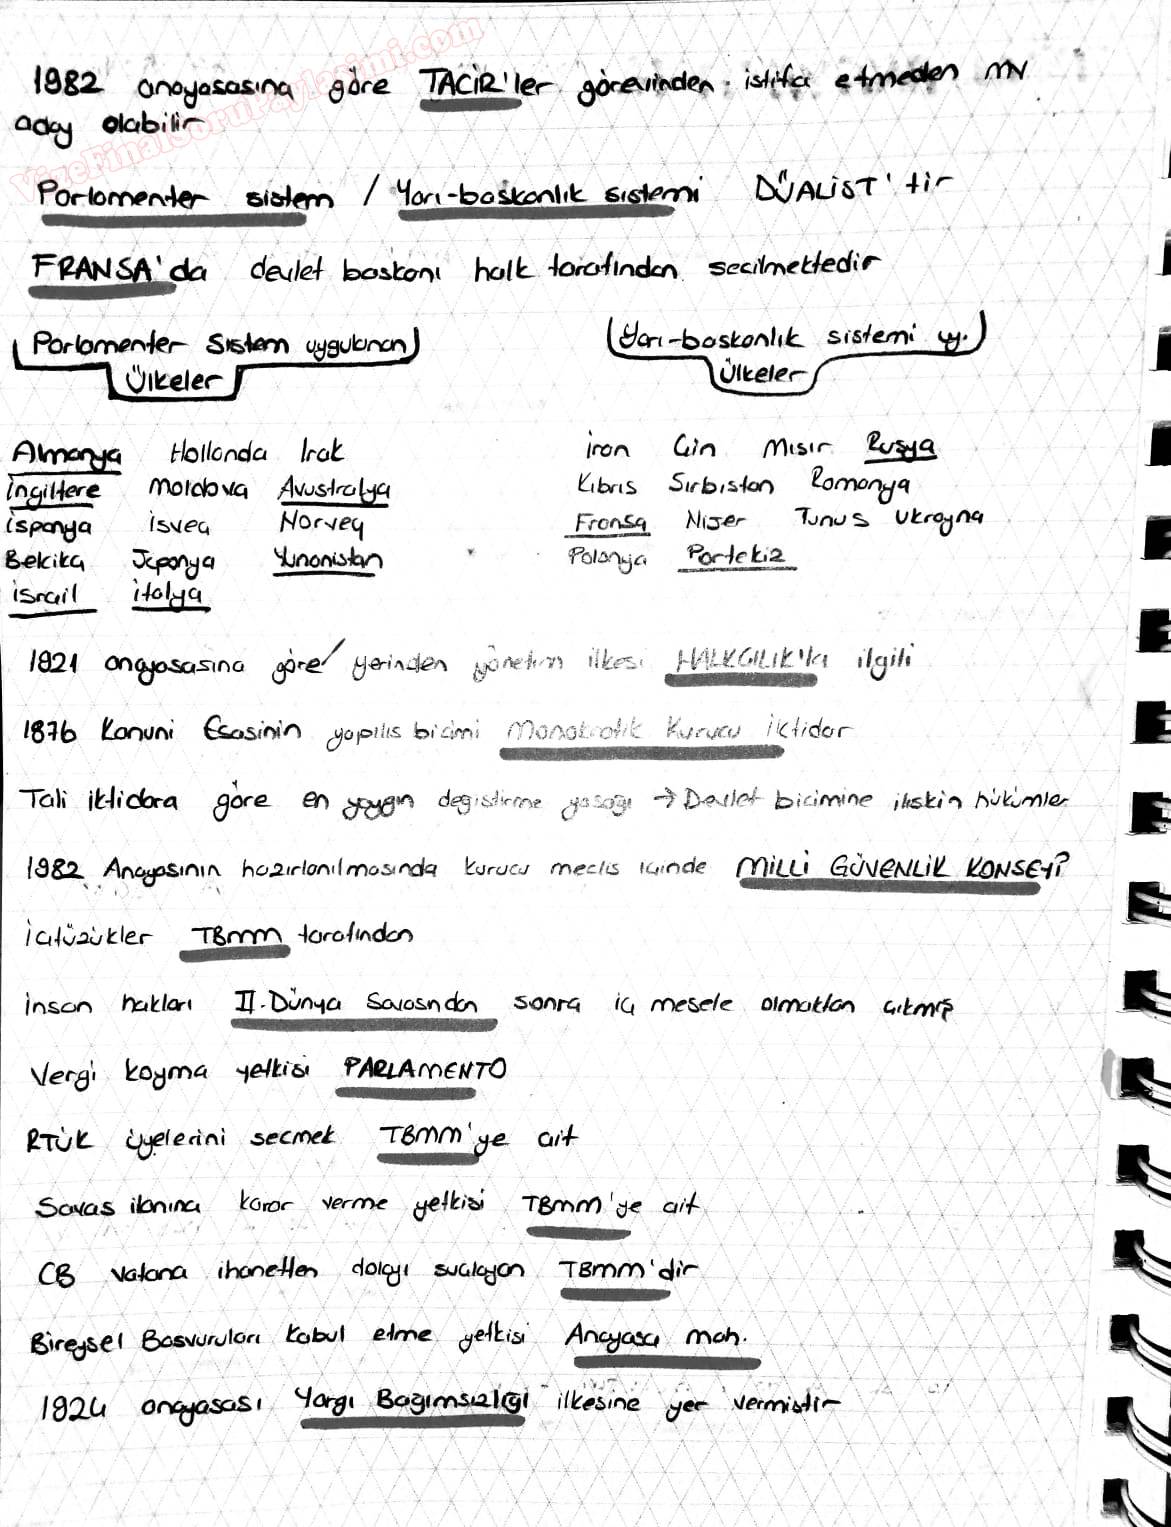 VizeFinalSoruPaylasimi.com
1982 anayasasına göre TACİR'ler görevinden istifa etmeden mv
aday olabilir
Parlomenter sistem / Yarı-başkanlık sistemi DÜALİST'tir
FRANSA'da devlet baskanı halk tarafından secilmektedir
Parlomenter Sistem uygulanan
Ülkeler
Yarı-baskanlık sistemi uy.
Ülkeler
Almanya Hollanda Irak
İngiltere Moldova Avustralya
İspanya İsveç Norveç
Belcika Japonya Yunanistan
İsrail İtalya
İran Çin Mısır Rusya
Kıbrıs Sırbistan Romanya
Fransa Nijer Tunus Ukrayna
Polonya Portekiz
1921 anayasasına göre yerinden yönetim ilkesi HALKÇILIK'la ilgili
1876 Kanuni Esasinin yapılıs bicimi Monokratik Kurucu İktidar
Tali iktidara göre en yaygın degistirme yasağı → Devlet bicimine iliskin hükümler
1982 Anayasının hazırlanılmasında kurucu meclis icinde MİLLİ GÜVENLİK KONSEYİ?
İctüzükler TBMM tarafından
İnsan hakları II.Dünya Savasından sonra iç mesele olmaktan çıkmış
Vergi koyma yetkisi PARLAMENTO
RTÜK üyelerini secmek TBMM'ye ait
Savas ilanına karar verme yetkisi TBMM'ye ait
CB vatana ihanetten dolayı suclayan TBMM'dir
Bireysel Basvuruları kabul etme yetkisi Anayasa mah.
1924 anayasası Yargı Bağımsızlığı ilkesine yer vermistir